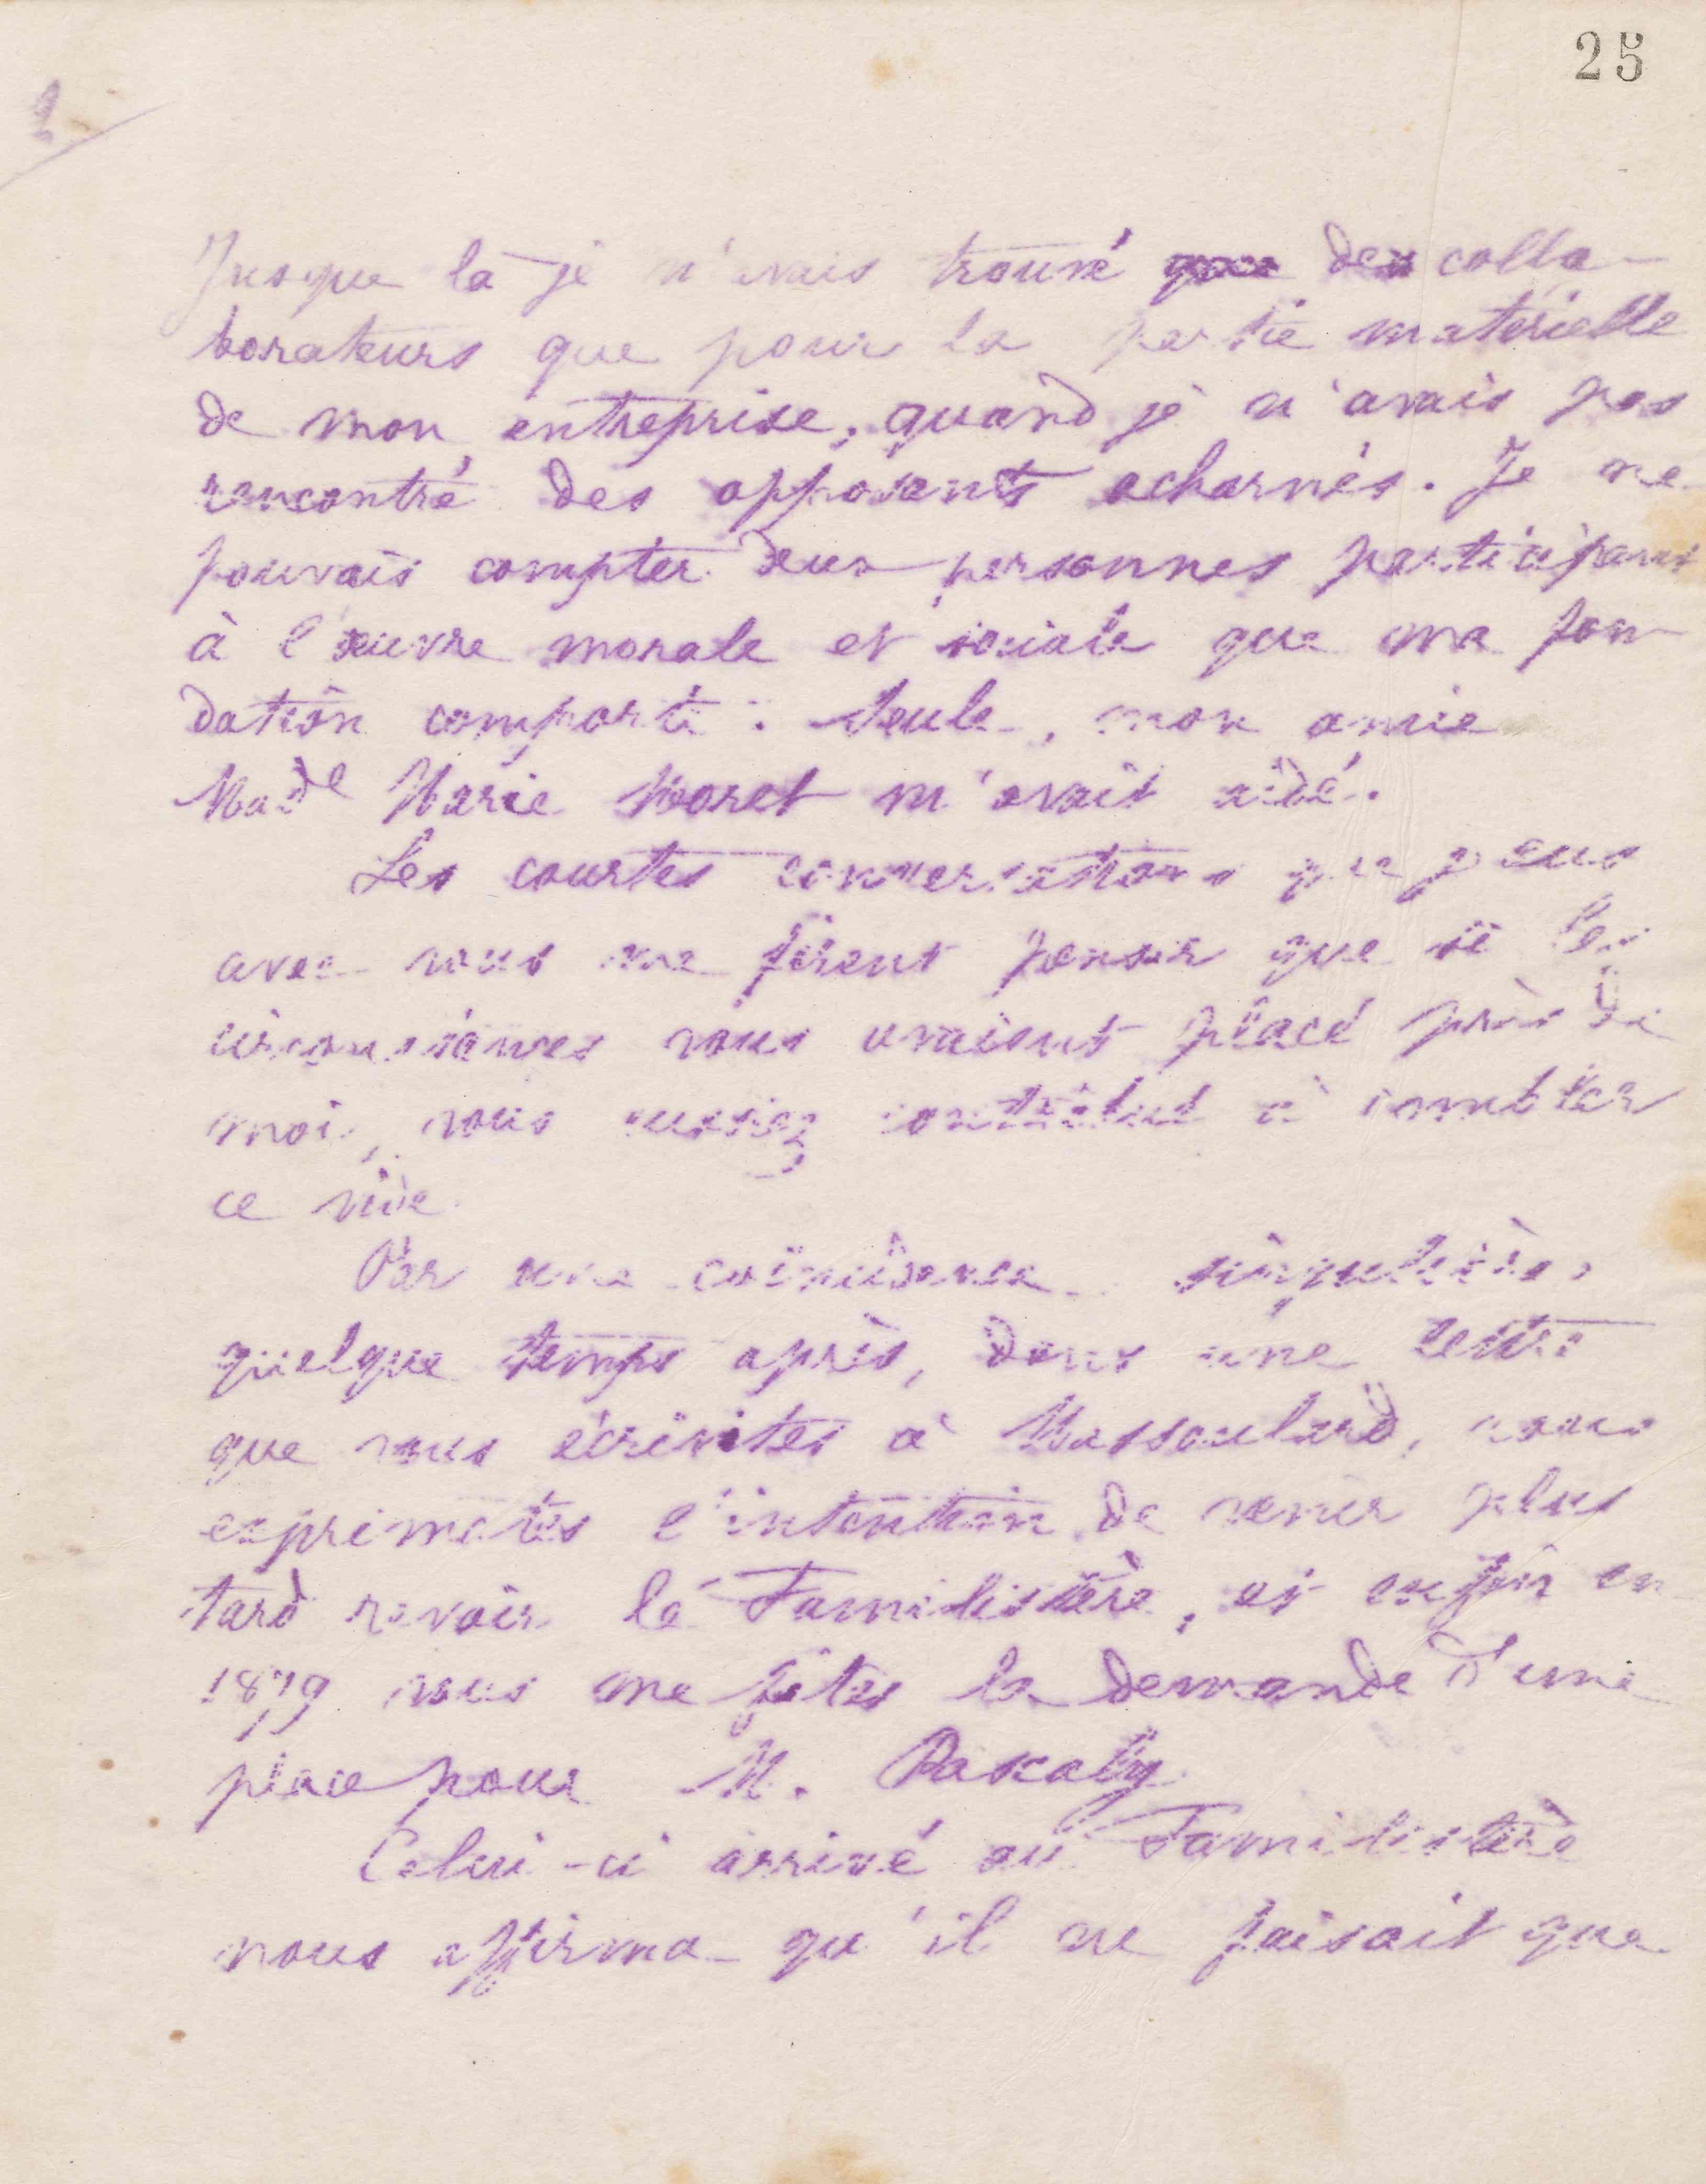 25
Jusque là je n'avais trouvé que des colla-
borateurs que pour la partie matérielle
de mon entreprise, quand je n'avais pas
rencontré des opposants acharnés. Je ne
pouvais compter deux personnes participant
à l'œuvre morale et sociale que ma fon
dation comporte : Seule, mon amie
Made Marie Moret m'avait aidé.
Les courtes conversations que j'eus
avec vous me firent penser que si les
circonstances vous avaient placé près de
moi, vous eussiez contribué à combler
ce vide.
Par une coïncidence singulière,
quelque temps après, dans une lettre
que vous écrivites à Massoulard, vous
exprimates l'intention de venir plus
tard revoir le Familistère, et enfin en
1879 vous me fites la demande d'une
place pour M. Pascaly
Celui-ci arrivé au Familistère
nous affirma qu'il ne faisait que